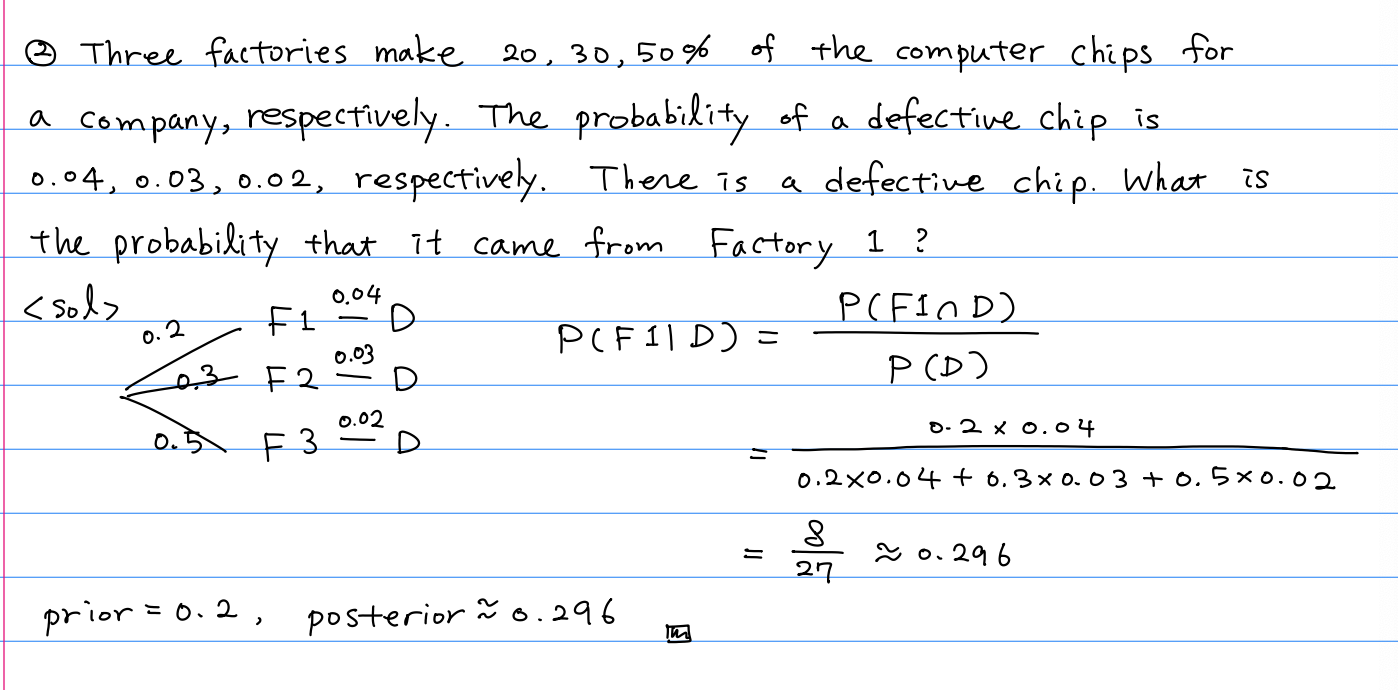 ② Three factories make 20, 30, 50% of the computer chips for
a company, respectively. The probability of a defective chip is
0.04, 0.03, 0.02, respectively. There is a defective chip. What is
the probability that it came from Factory 1 ?
<sol>
0.2 F1 0.04 D
0.3 F2 0.03 D
0.5 F3 0.02 D
P(F1|D) = P(F1∩D) / P(D)
= 0.2 × 0.04 / 0.2×0.04 + 0.3×0.03 + 0.5×0.02
= 8/27 ≈ 0.296
prior = 0.2, posterior ≈ 0.296